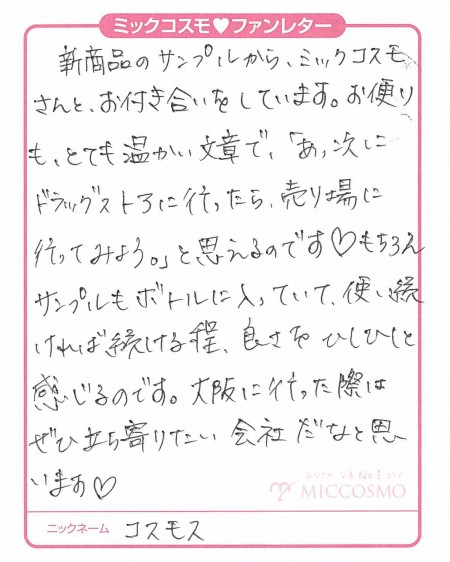 ミックコスモ♥ファンレター
新商品のサンプルから、ミックコスモ
さんと、お付き合いをしています。お便り
も、とても温かい文章で、「あっ、次に
ドラッグストアに行ったら、売り場に
行ってみよう。」と思えるのです♡もちろん
サンプルもボトルに入っていて、使い続
ければ続ける程、良さを ひしひしと
感じるのです。大阪に行った際は
ぜひ立ち寄りたい 会社だなと思
います♡
MICCOSMO
ニックネーム コスモス